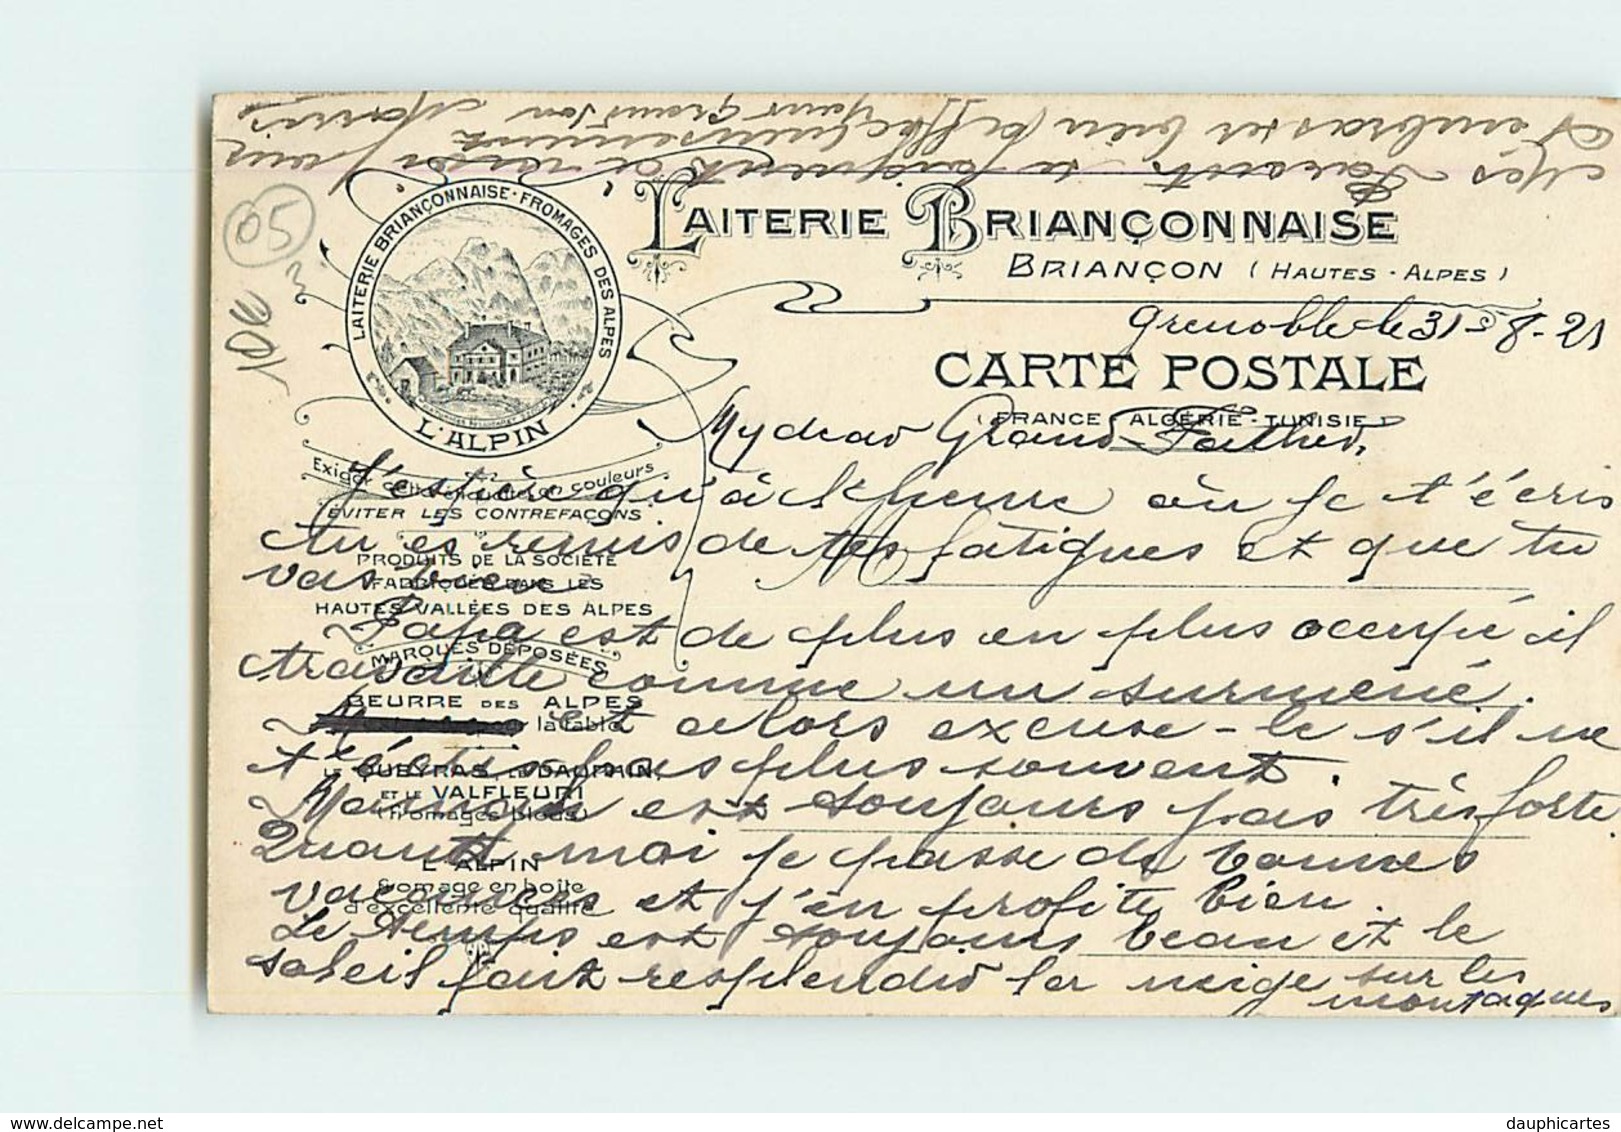 Mes Parents se joignent à moi pour
t'embrasser bien affectueusement
Yours Grand Son
05
10€
LAITERIE BRIANÇONNAISE · FROMAGES DES ALPES
L'ALPIN
LAITERIE BRIANÇONNAISE
BRIANÇON (HAUTES-ALPES)
Grenoble le 31-8-21
CARTE POSTALE
(FRANCE - ALGÉRIE - TUNISIE)
My dear Grand-Father,
Exiger cette étiquette en couleurs
ÉVITER LES CONTREFAÇONS
PRODUITS DE LA SOCIÉTÉ
FABRIQUÉS DANS LES
HAUTES VALLÉES DES ALPES
MARQUES DÉPOSÉES
BEURRE DES ALPES
la table
LE QUEYRAS, LE DAUPHIN,
ET LE VALFLEURI
(fromages bleus)
L'ALPIN
fromage en boîte
d'excellente qualité
J'espère qu'à l'heure où je t'écris
tu es remis de tes fatigues et que tu
vas bien
M
Papa est de plus en plus occupé il
travaille comme un surmené.
et alors excuse-le s'il ne
t'écris pas plus souvent.
Maman est toujours pas très forte.
Quant à moi je passe de bonnes
vacances et j'en profite bien.
Le temps est toujours beau et le
soleil fait resplendir la neige sur les
montagnes
dauphicartes